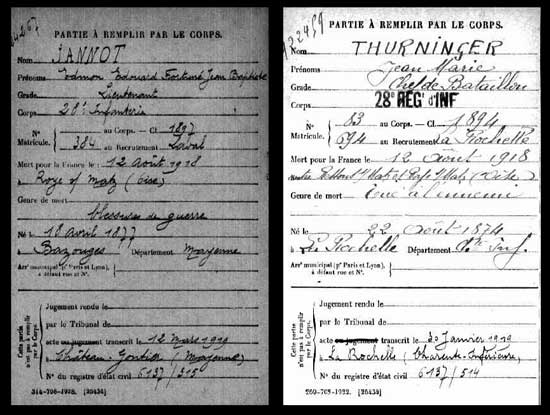 PARTIE À REMPLIR PAR LE CORPS.
Nom JANNOT
Prénoms Edmon Edouard Fortuné Jean Baptiste
Grade Lieutenant
Corps 28e Infanterie
N° Matricule. au Corps. — Cl. 1897
384 au Recrutement Laval
Mort pour la France le 12 Août 1918
à Roye s/ Matz (Oise)
Genre de mort
blessures de guerre
Né le 18 avril 1877
à Bazouges Département Mayenne
Arrt municipal (pr Paris et Lyon), à défaut rue et N°.
Cette partie n'est pas à remplir par le Corps.
Jugement rendu le
par le Tribunal de
acte ou jugement transcrit le 12 Mars 1919
à Château-Gontier (Mayenne)
N° du registre d'état civil 6137/315
[26434]
PARTIE À REMPLIR PAR LE CORPS.
Nom THURNINGER
Prénoms Jean Marie
Grade Chef de Bataillon
Corps 28e REG d'INF
N° Matricule. 83 au Corps. — Cl. 1894
694 au Recrutement La Rochelle
Mort pour la France le 12 août 1918
Matz et Matz (Oise)
Genre de mort Tué à l'ennemi
Né le 22 août 1874
à La Rochelle Département Inf.
Arrt municipal (pr Paris et Lyon), à défaut rue et N°.
Cette partie n'est pas à remplir par le Corps.
Jugement rendu le
par le Tribunal de
acte ou jugement transcrit le 30 Janvier 1919
à La Rochelle (Charente-Inférieure)
N° du registre d'état civil 6137/514
269-708-1922. [26434]